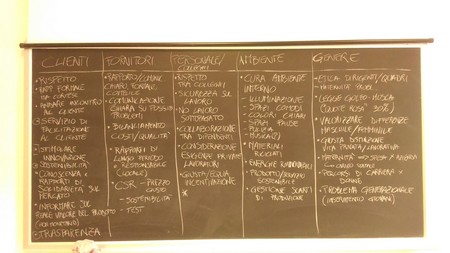 CLIENTI
• RISPETTO
• INCONTRO
AL CLIENTE
• SERVIZIO DI
AL CLIENTE
• STIMOLARE
INNOVAZIONE
SOSTENIBILITÀ
• CONOSCENZA
RAPPORTI DI
SOLIDARIETÀ SUL
MERCATO
• INFORMARE SUL
REALE VALORE DEL PRODOTTO
• TRASPARENZA
FORNITORI
CHIARO, FONTALE
• COMUNICAZIONE
CHIARA SU
• BILANCIAMENTO
COSTI/QUALITÀ
• RAPPORTI DI
LUNGO PERIODO
(LOCALE)
• CSR - PREZZO
GIUSTO
- SOSTENIBILITÀ
- TEST
PERSONALE/
COLLEGHI
• RISPETTO
TRA COLLEGHI
• SICUREZZA SUL
LAVORO
• NO LAVORO
SOTTOPAGATO
• COLLABORAZIONE
TRA DIFFERENTI
• CONSIDERAZIONE
ESIGENZE PRIVATE
LAVORATORI
• GIUSTA/EQUA
INCENTIVAZIONE
*
AMBIENTE
• CURA AMBIENTE
INTERNO
- ILLUMINAZIONE
- SPAZI COMODI
- COLORI CHIARI
- SPAZI PAUSE
- PULIZIA
- MUSICA
• MATERIALI
RICICLATI
• ENERGIE RINNOVABILI
• PRODOTTO/SERVIZIO
SOSTENIBILE
• GESTIONE SCARTI
DI PRODUZIONE
GENERE
• ETICA DIRIGENTI/QUADRI
• LEGGE GOLFO MOSCA
(QUOTE ROSA 30%)
• VALORIZZARE DIFFERENZE
MASCHILE/FEMMINILE
• GIUSTA DISTINZIONE
VITA PRIVATA/LAVORATIVA
• MATERNITÀ
• PERCORSI DI CARRIERA X
DONNE
• PROBLEMA GENERAZIONALE